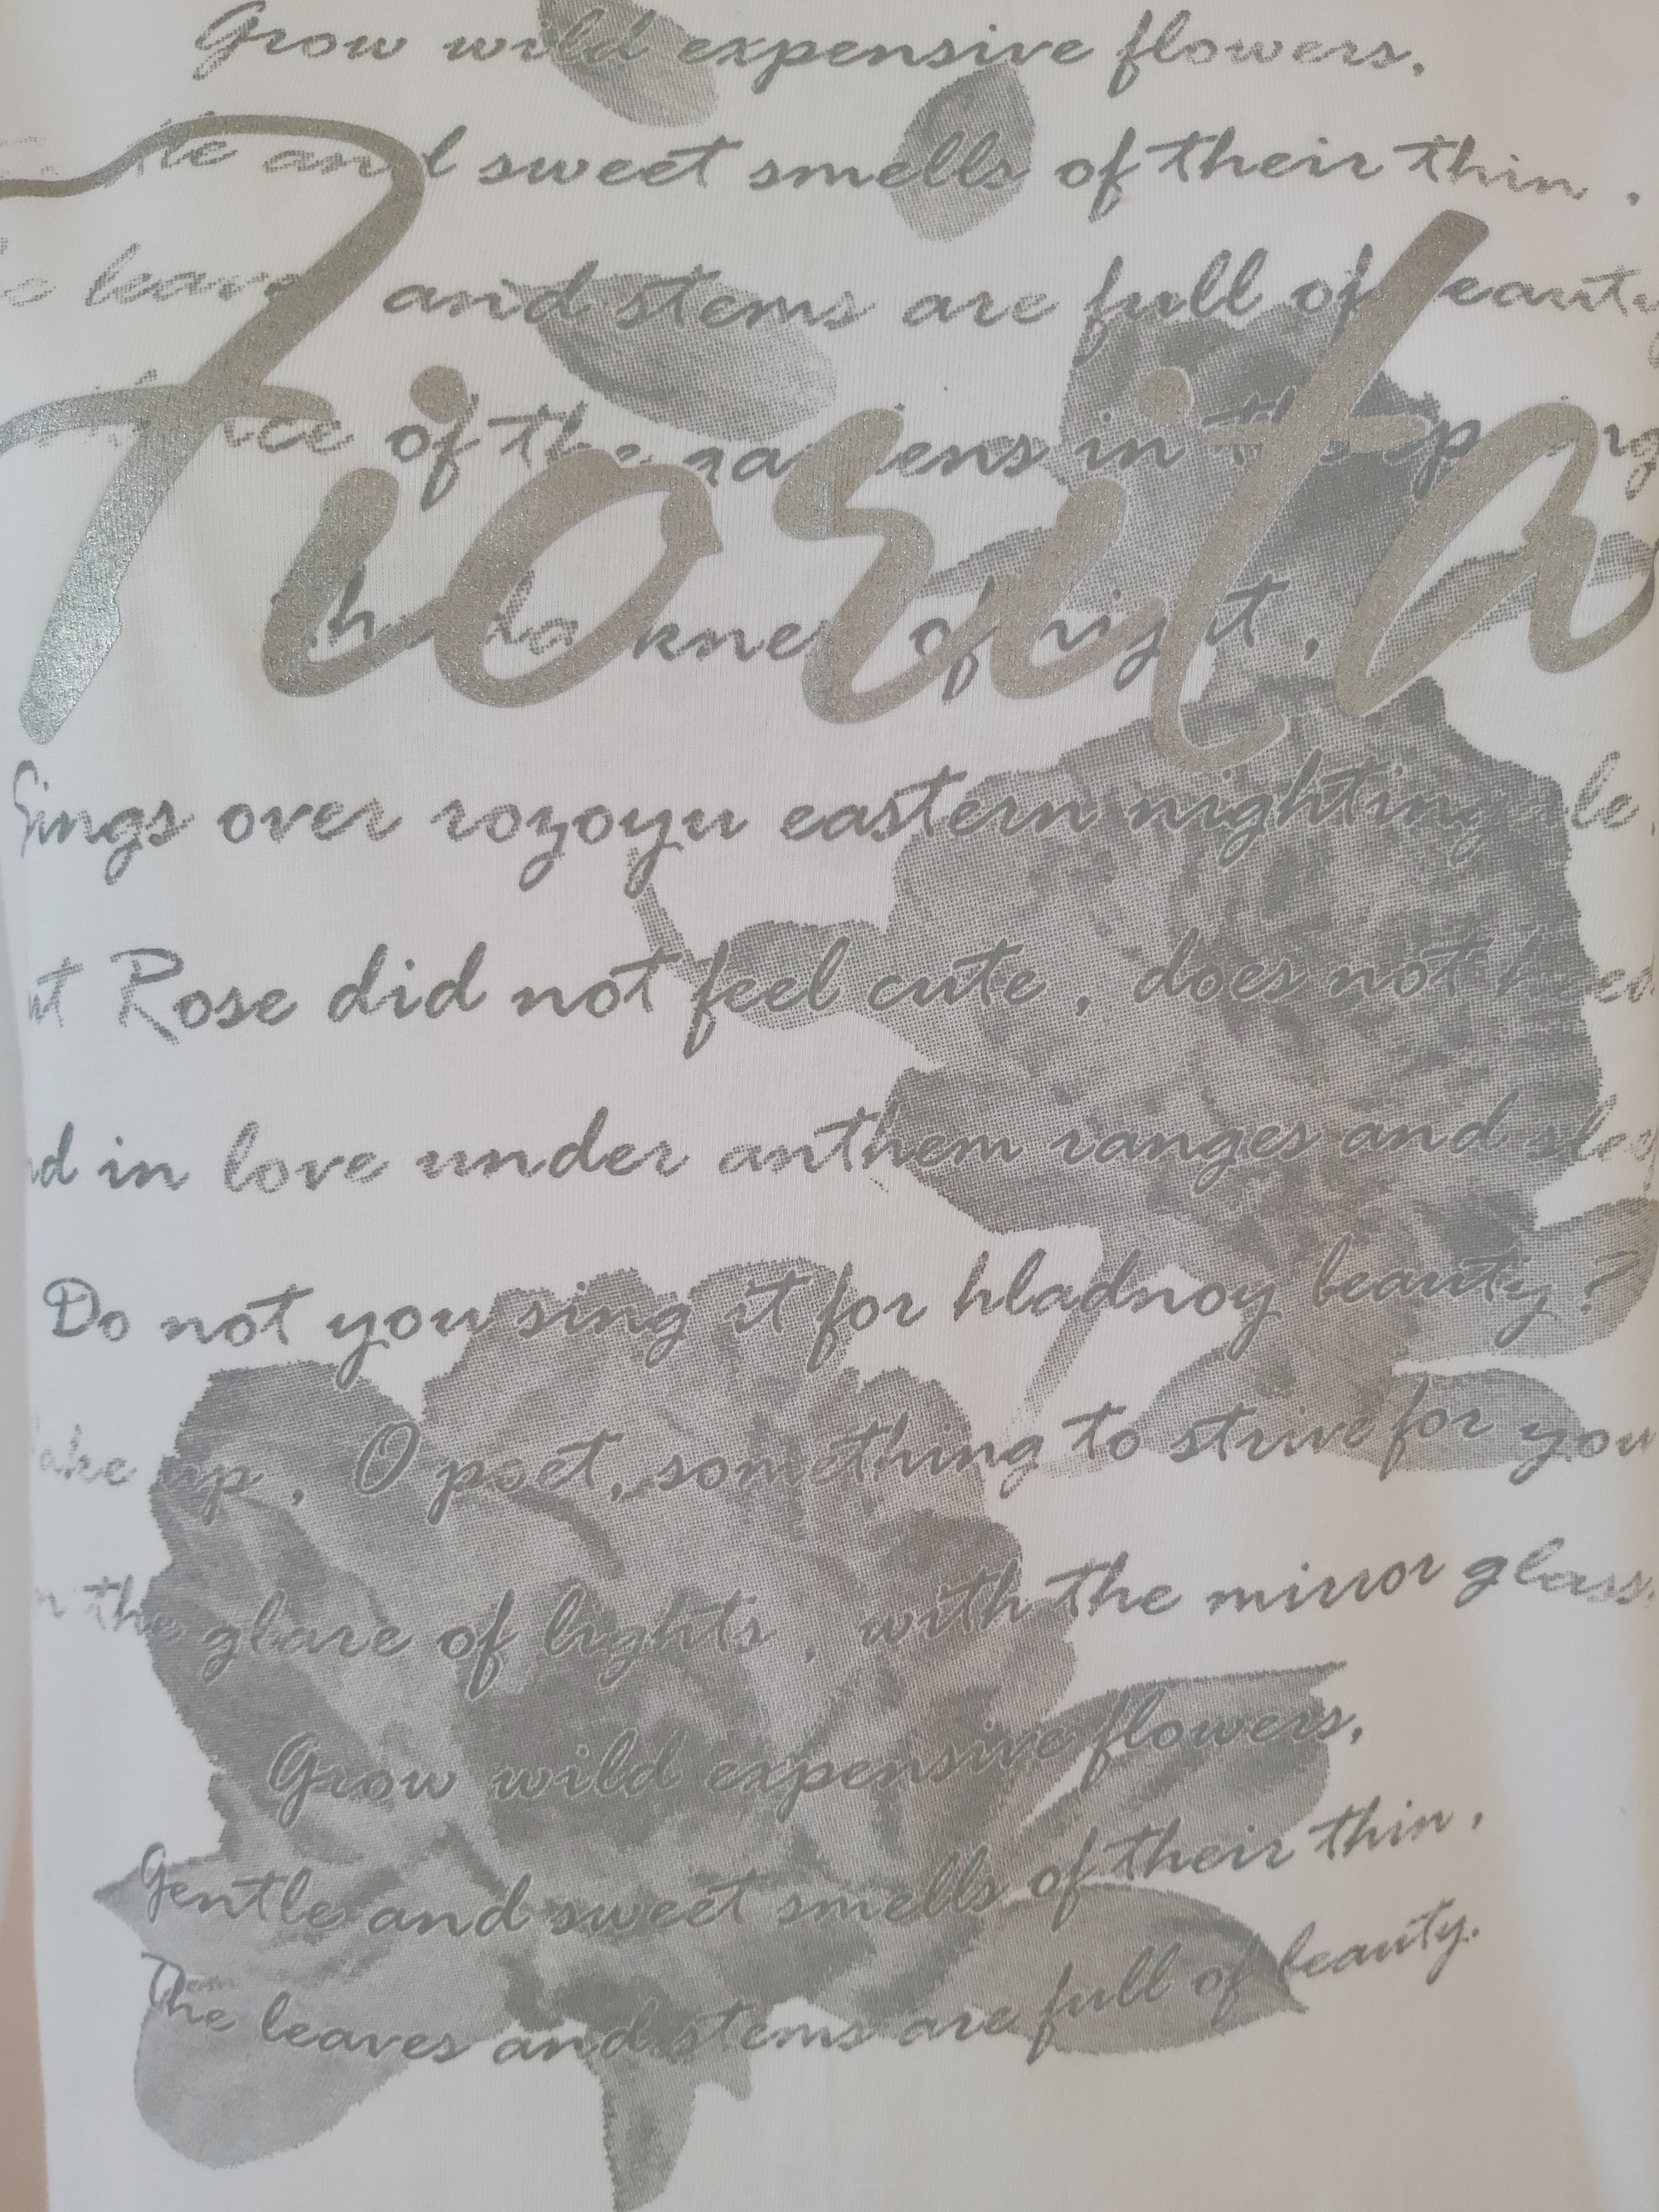 Grow wild expensive flowers,
and sweet smells of their thin ,
and stems are full of
Fiorita
of the gardens in the
of night ,
Sings over rozoyu eastern nightingale.
Rose did not feel cute , does not
in love under anthem ranges and
Do not you sing it for hladnoy beauty ?
up , O poet, something to strive for you
the glare of lights , with the mirror glass.
Grow wild expensive flowers,
Gentle and sweet smells of their thin ,
The leaves and stems are full of beauty.